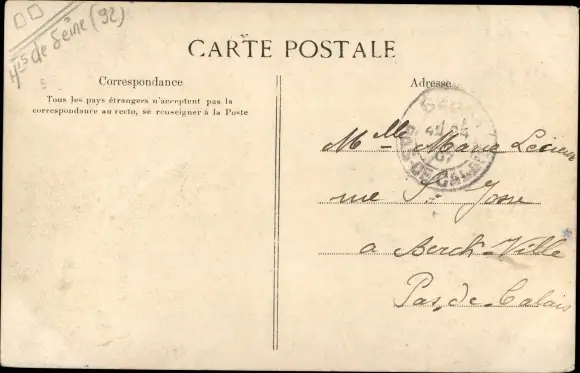 Hts de Seine (92)
CARTE POSTALE
Correspondance
Tous les pays étrangers n'acceptent pas la
correspondance au recto, se renseigner à la Poste
Adresse
PAS-DE-CALAIS
07
Mlle Marie
rue St
a Berck-Ville
Pas-de-Calais